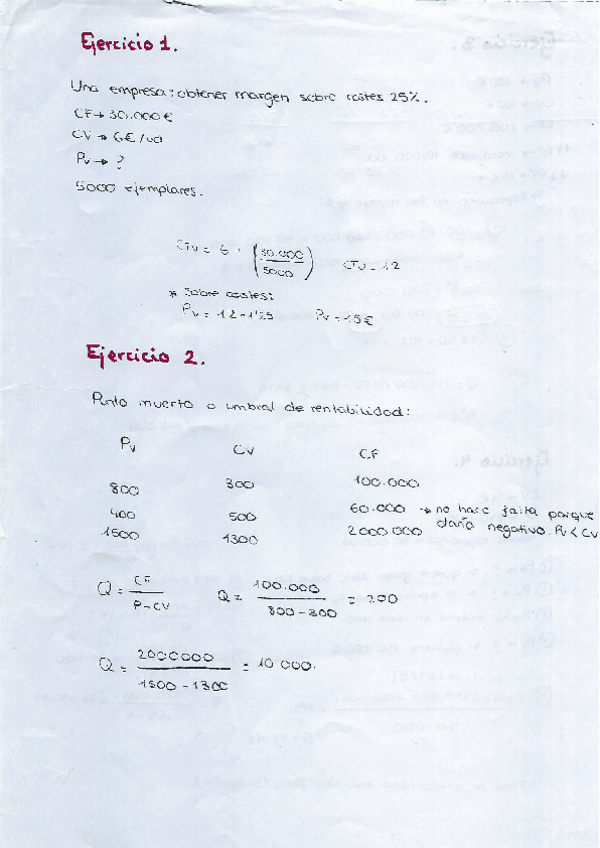 Ejercicio 1.
Una empresa: obtener margen sobre costes 25%.
CF → 30.000 €
CV → 6€/ud
Pv → ?
5000 ejemplares.
CTU = 6 + (30.000 / 5000) CTU = 12
* Sobre costes:
Pv = 12 - 1'25 Pv = 15€
Ejercicio 2.
Punto muerto o umbral de rentabilidad:
Pv CV CF
800 300 100.000
400 500 60.000 → no hace falta porque
daría negativo. Pv < CV
1500 1300 2000000
Q = CF / P-CV Q = 100.000 / 800 - 300 = 200
Q = 2000000 / 1500 - 1300 = 10 000.